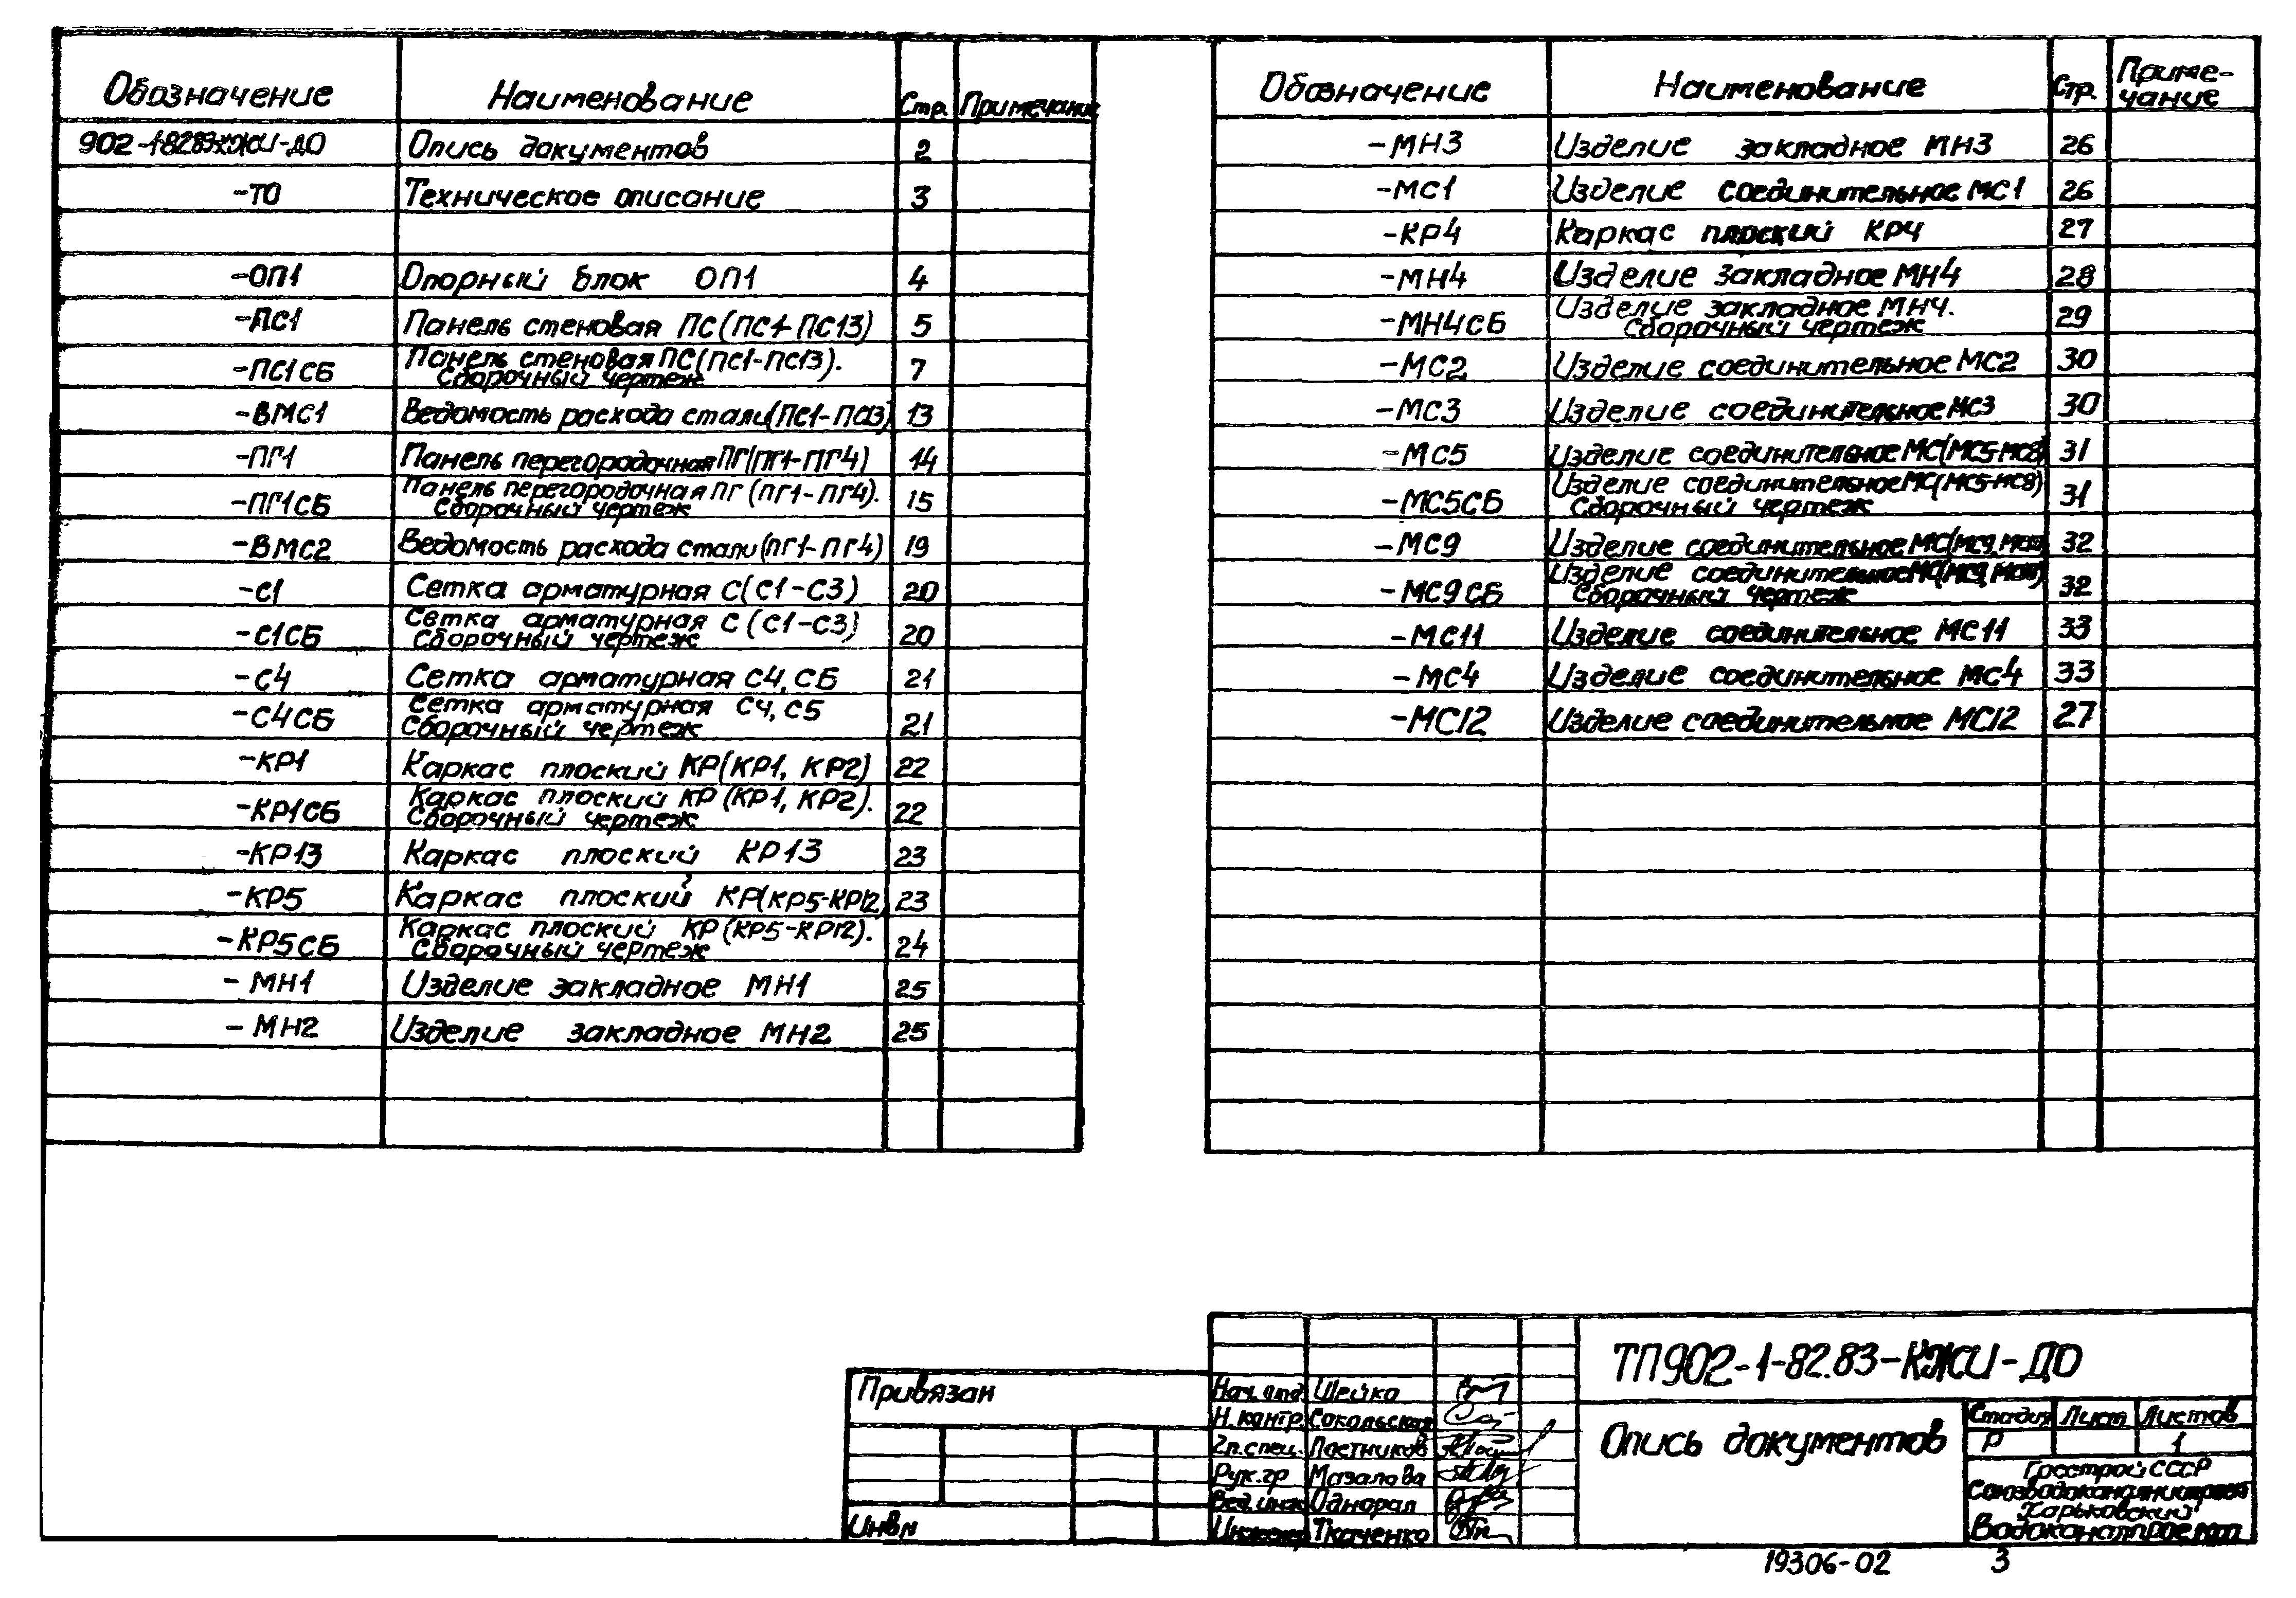 Обозначение Наименование Стр. Примечание
902-1-82.83-КЖИ-ДО Опись документов 2
-ТО Техническое описание 3
-ОП1 Опорный блок ОП1 4
-ПС1 Панель стеновая ПС(ПС1-ПС13) 5
-ПС1СБ Панель стеновая ПС(ПС1-ПС13).
Сборочный чертеж 7
-ВМС1 Ведомость расхода стали(ПС1-ПС13) 13
-ПГ1 Панель перегородочная ПГ(ПГ1-ПГ4) 14
-ПГ1СБ Панель перегородочная ПГ (ПГ1-ПГ4).
Сборочный чертеж 15
-ВМС2 Ведомость расхода стали(ПГ1-ПГ4) 19
-С1 Сетка арматурная С(С1-С3) 20
-С1СБ Сетка арматурная С (С1-С3)
Сборочный чертеж 20
-С4 Сетка арматурная С4, СБ 21
-С4СБ Сетка арматурная С4, С5
Сборочный чертеж 21
-КР1 Каркас плоский КР(КР1, КР2) 22
-КР1СБ Каркас плоский КР (КР1, КР2).
Сборочный чертеж 22
-КР13 Каркас плоский КР13 23
-КР5 Каркас плоский КР(КР5-КР12 23
-КР5СБ Каркас плоский КР (КР5-КР12).
Сборочный чертеж 24
- МН1 Изделие закладное МН1 25
- МН2 Изделие закладное МН2 25
Обозначение Наименование Стр. Приме-
чание
-МН3 Изделие закладное МН3 26
-МС1 Изделие соединительное МС1 26
-КР4 Каркас плоский КР4 27
-МН4 Изделие закладное МН4 28
-МН4СБ Изделие закладное МН4.
Сборочный чертеж 29
-МС2 Изделие соединительное МС2 30
-МС3 Изделие соединительное МС3 30
-МС5 Изделие соединительное МС(МС5-МС8) 31
-МС5СБ Изделие соединительное МС(МС5-МС8)
Сборочный чертеж 31
-МС9 Изделие соединительное 32
-МС9СБ Изделие соединительное
Сборочный чертеж 32
-МС11 Изделие соединительное МС11 33
-МС4 Изделие соединительное МС4 33
-МС12 Изделие соединительное МС12 27
Привязан
Инв№
Нач.отд. Шейко
Н.контр. Сокольская
Гл.спец. Постников
Рук.гр Мазалова
Вед.инж Однорал
Инженер Ткаченко
ТП902-1-82.83-КЖИ-ДО
Опись документов
Стадия Лист Листов
Р 1
Госстрой СССР
Союзводоканалниипроект
Харьковский
Водоканалпроект
19306-02 3